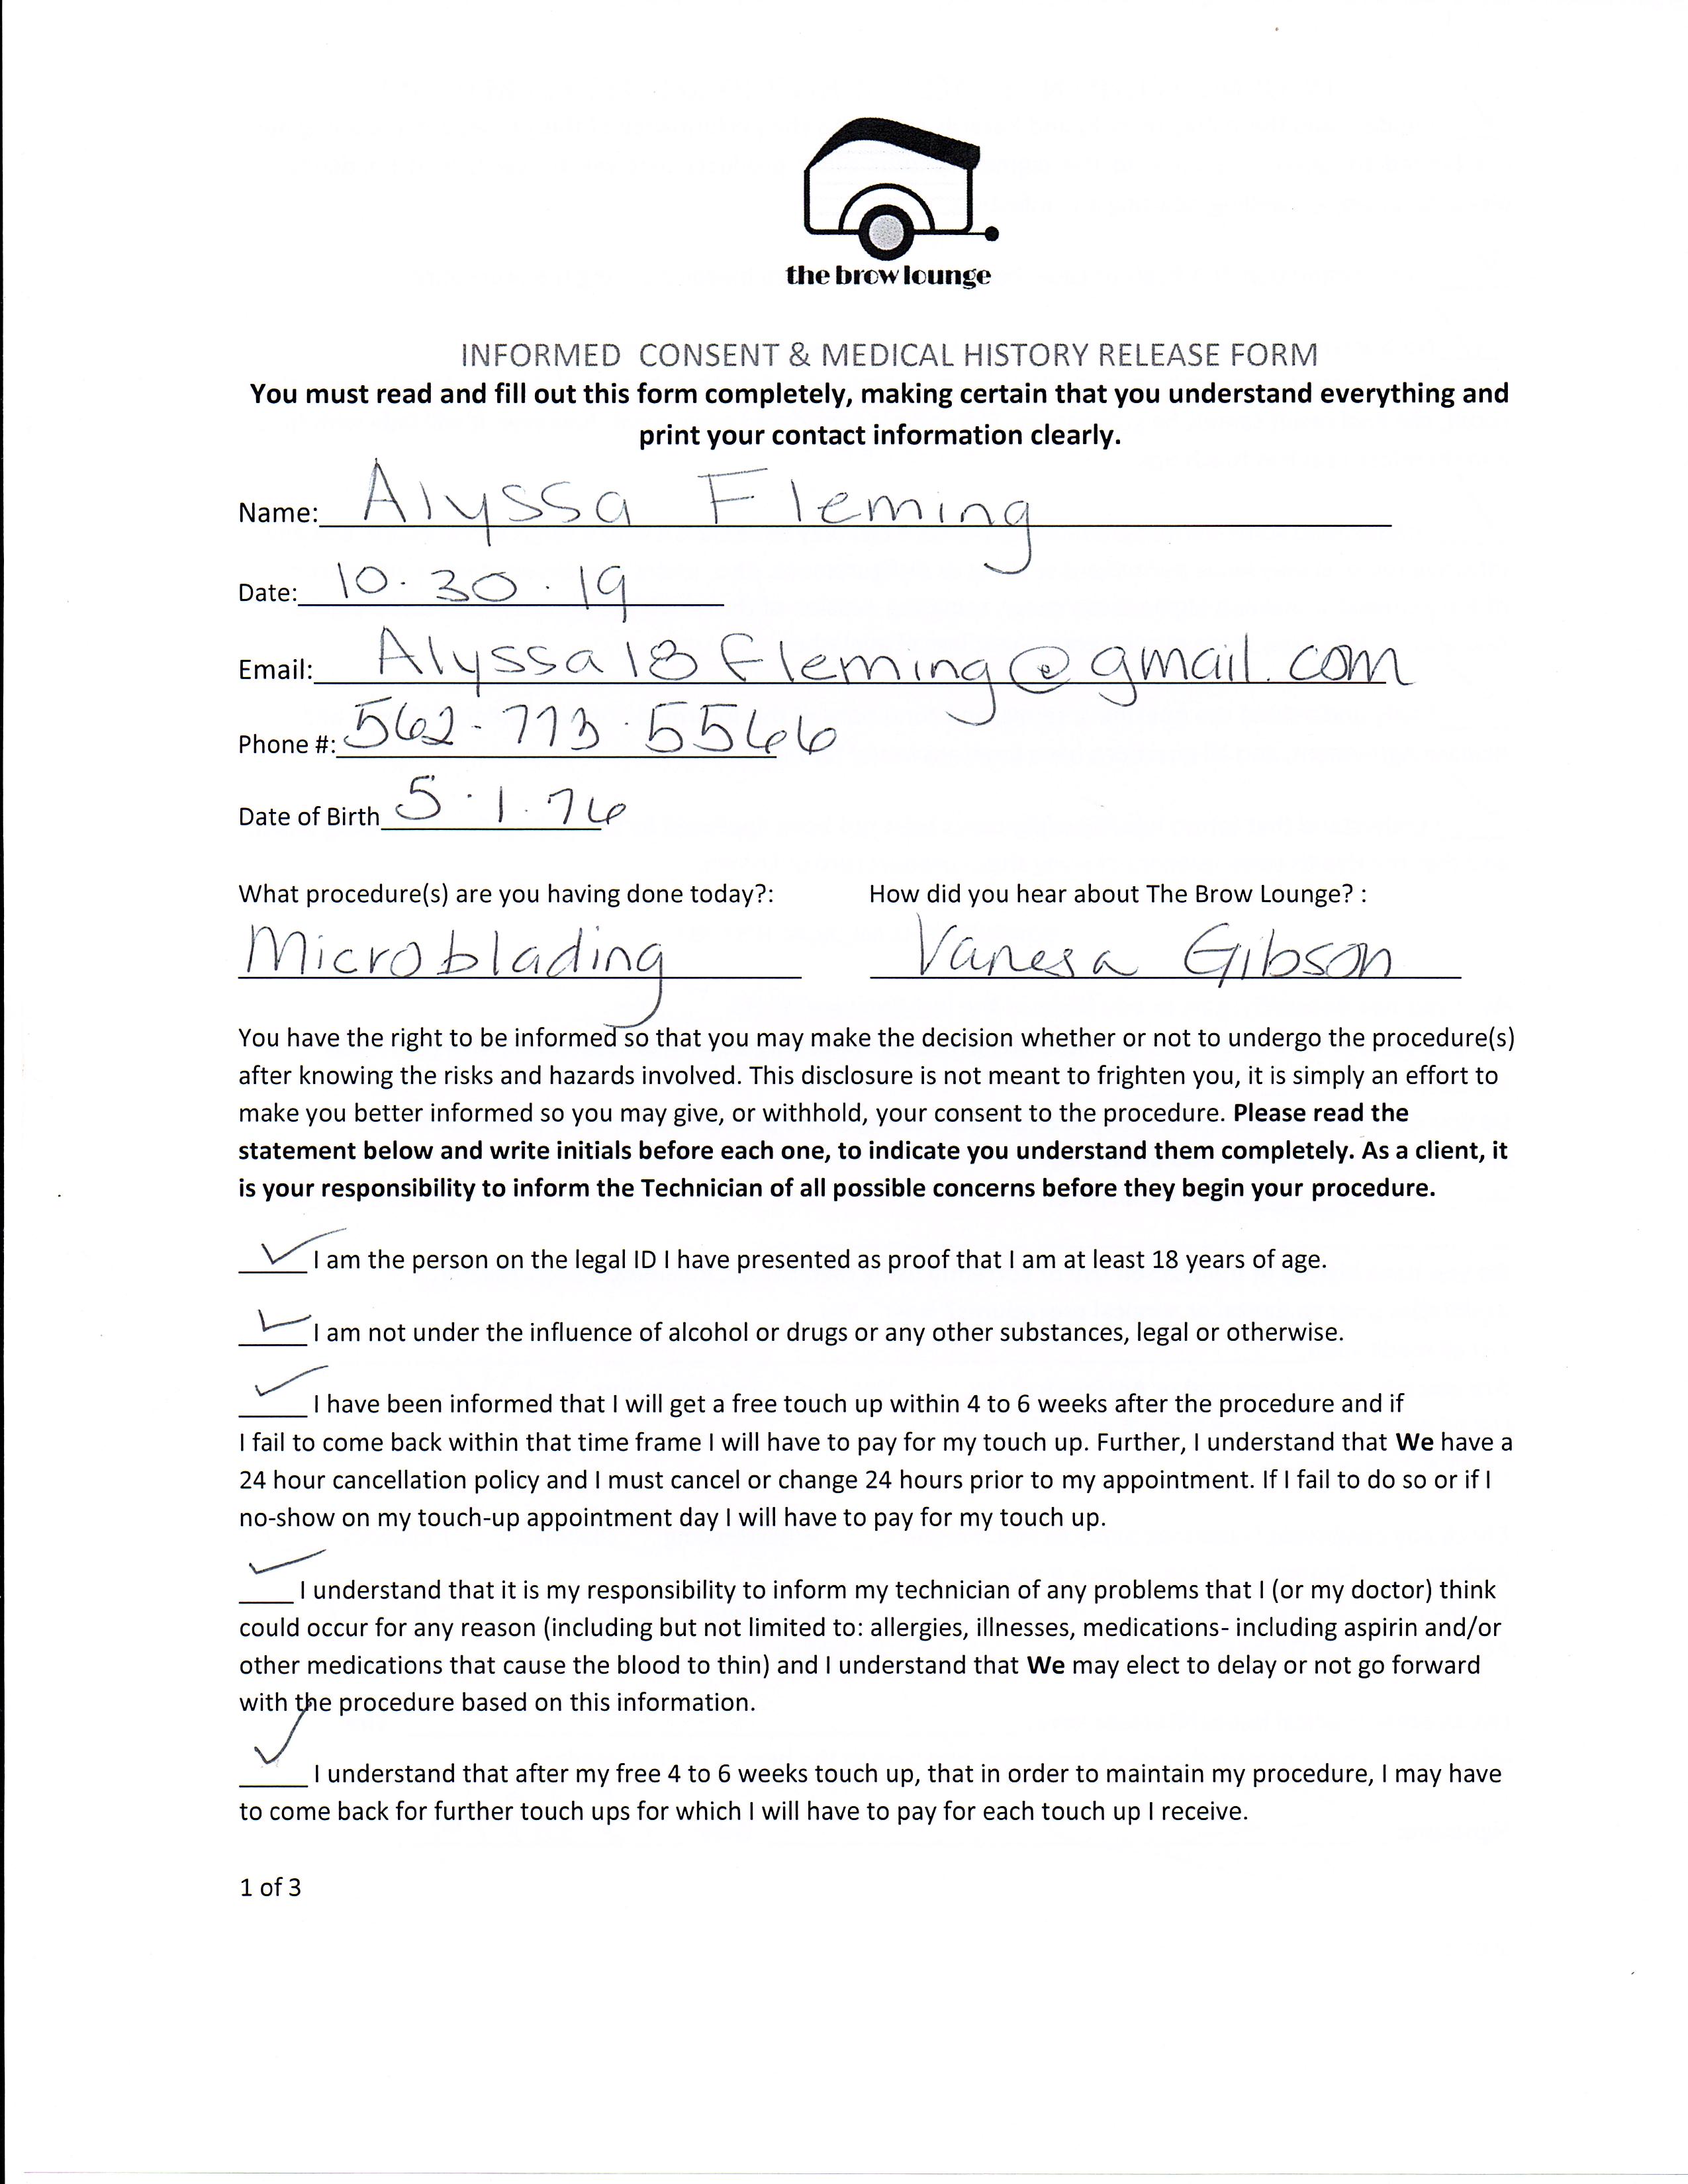 the brow lounge
INFORMED CONSENT & MEDICAL HISTORY RELEASE FORM
You must read and fill out this form completely, making certain that you understand everything and
print your contact information clearly.
Name: Alyssa Fleming
Date: 10.30.19
Email: Alyssa18Fleming@gmail.com
Phone #: 562-773.5566
Date of Birth 5.1.76
What procedure(s) are you having done today?: How did you hear about The Brow Lounge? :
Microblading Vanesa Gibson
You have the right to be informed so that you may make the decision whether or not to undergo the procedure(s)
after knowing the risks and hazards involved. This disclosure is not meant to frighten you, it is simply an effort to
make you better informed so you may give, or withhold, your consent to the procedure. Please read the
statement below and write initials before each one, to indicate you understand them completely. As a client, it
is your responsibility to inform the Technician of all possible concerns before they begin your procedure.
✓ I am the person on the legal ID I have presented as proof that I am at least 18 years of age.
✓ I am not under the influence of alcohol or drugs or any other substances, legal or otherwise.
✓ I have been informed that I will get a free touch up within 4 to 6 weeks after the procedure and if
I fail to come back within that time frame I will have to pay for my touch up. Further, I understand that We have a
24 hour cancellation policy and I must cancel or change 24 hours prior to my appointment. If I fail to do so or if I
no-show on my touch-up appointment day I will have to pay for my touch up.
✓ I understand that it is my responsibility to inform my technician of any problems that I (or my doctor) think
could occur for any reason (including but not limited to: allergies, illnesses, medications- including aspirin and/or
other medications that cause the blood to thin) and I understand that We may elect to delay or not go forward
with the procedure based on this information.
✓ I understand that after my free 4 to 6 weeks touch up, that in order to maintain my procedure, I may have
to come back for further touch ups for which I will have to pay for each touch up I receive.
1 of 3